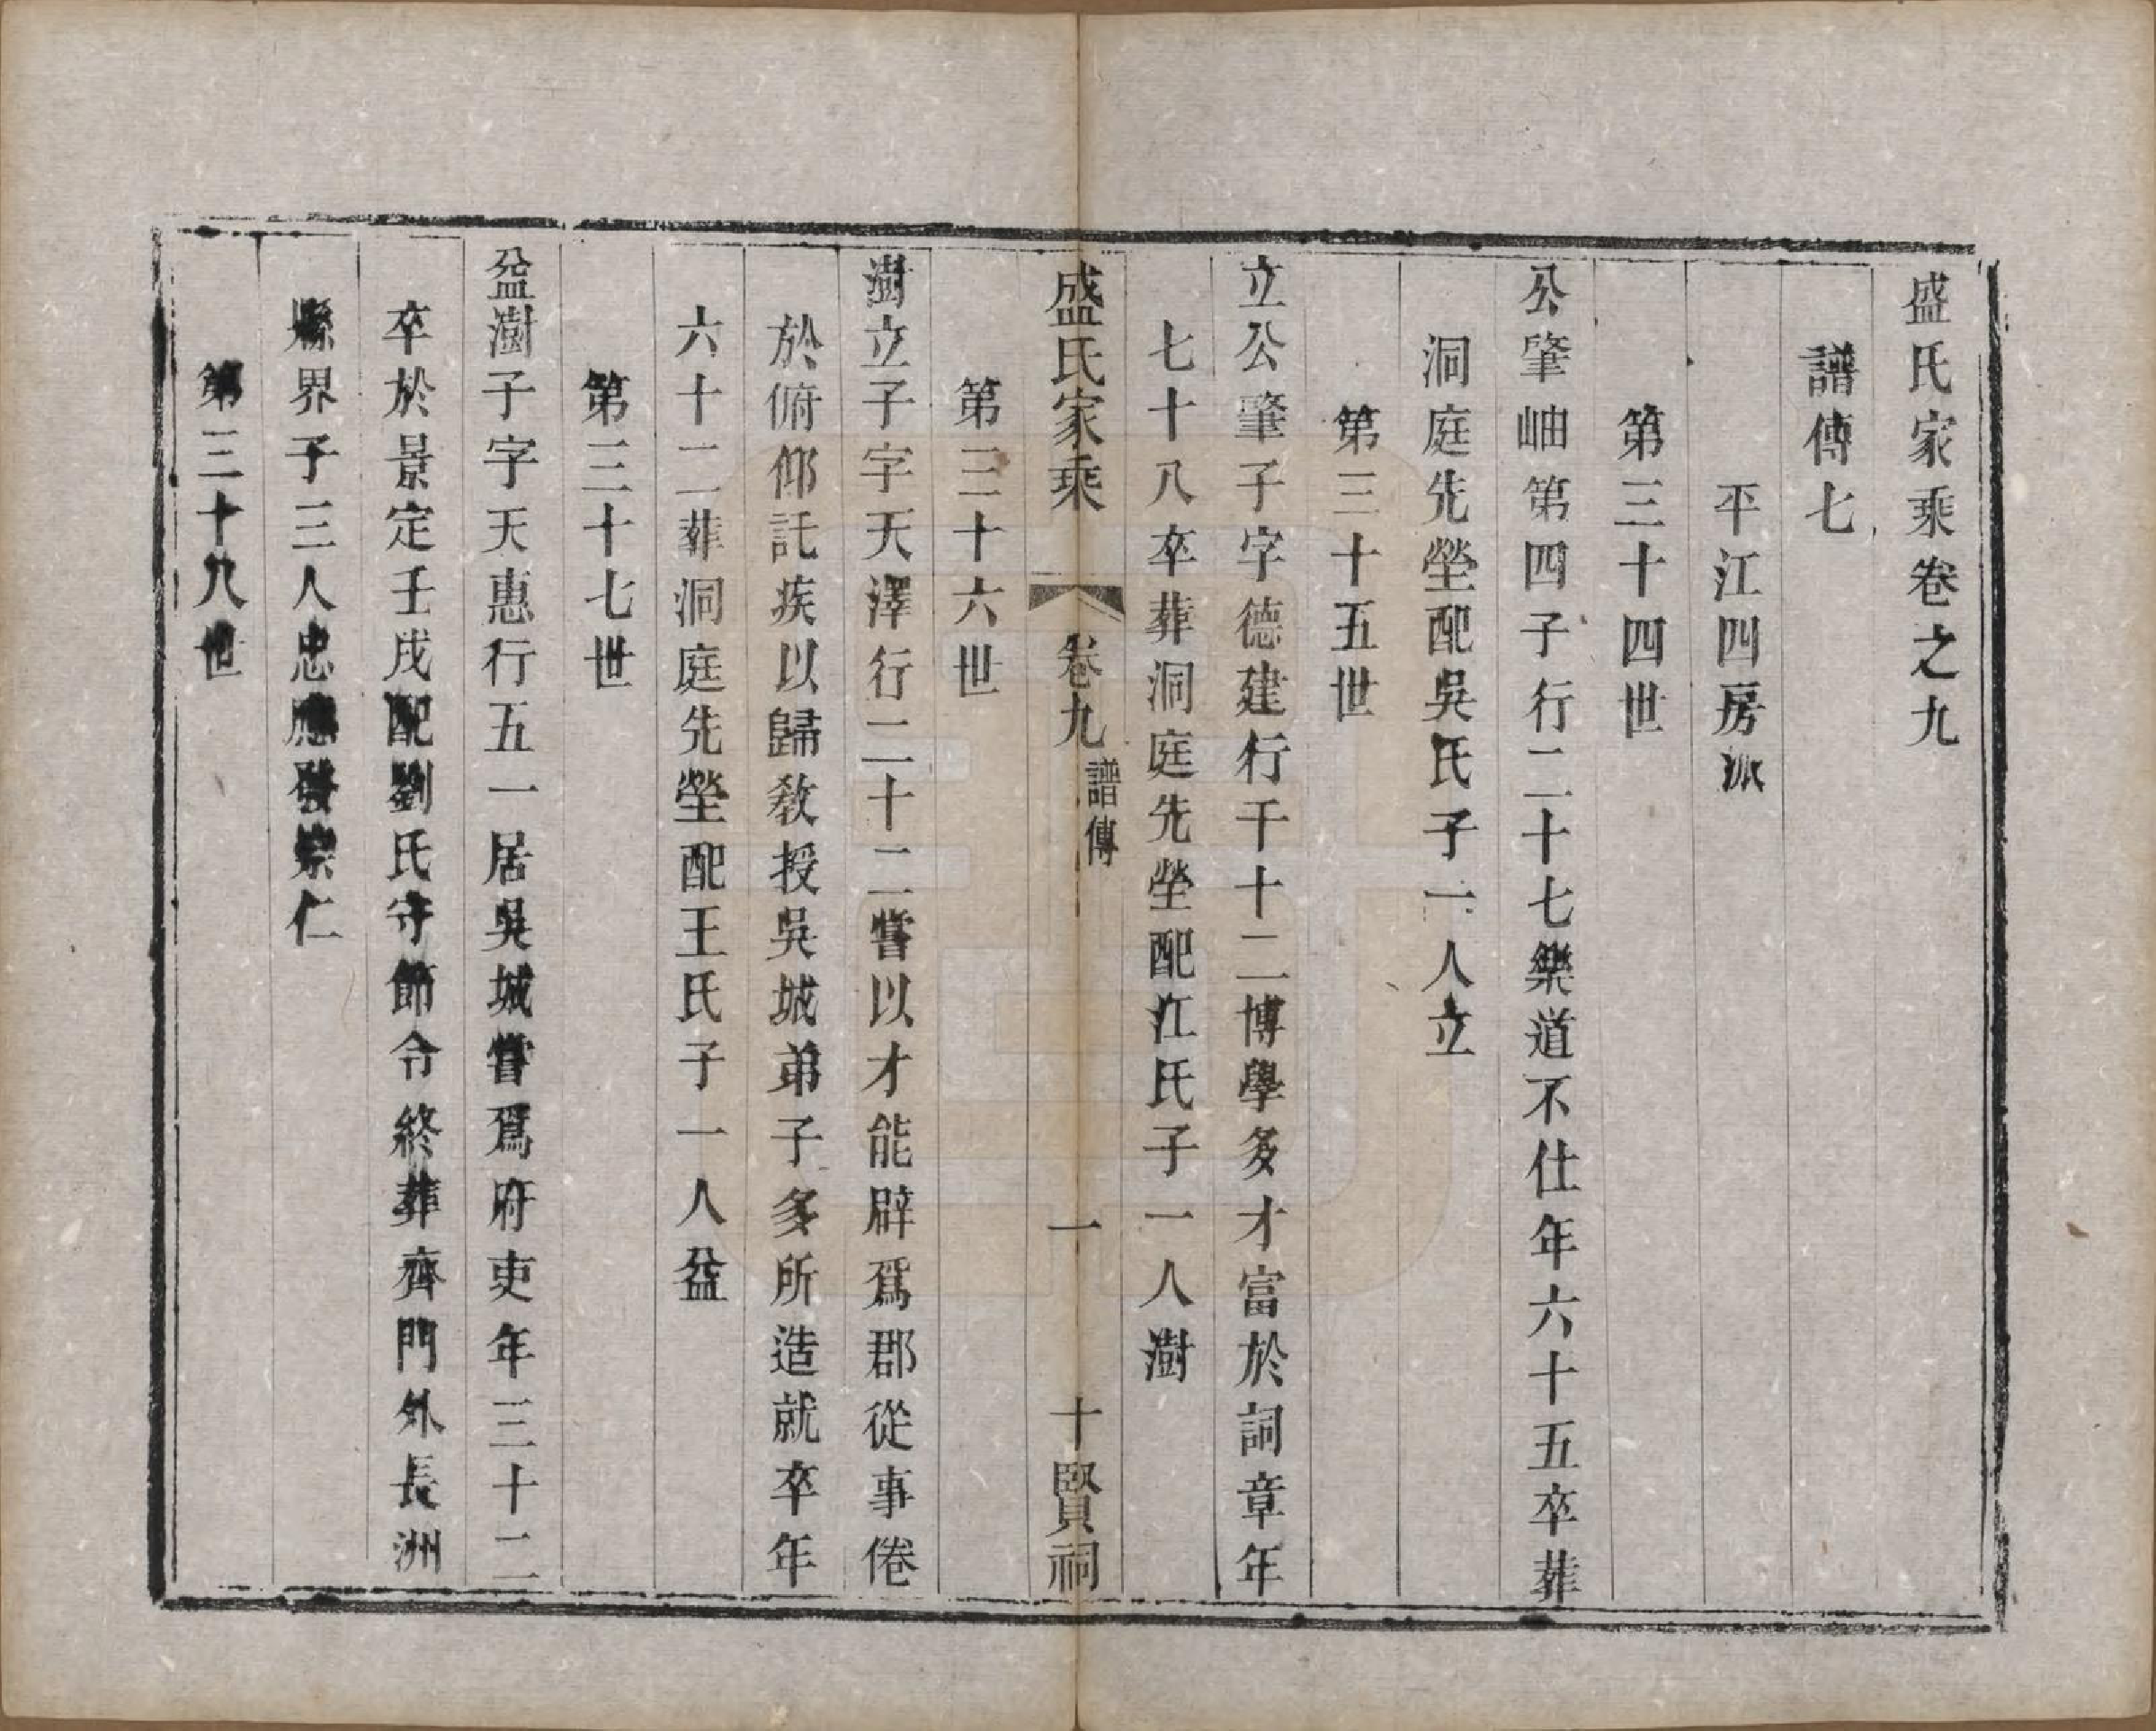 盛氏家乘卷之九
譜傳七
平江四房派
第三十四世
公肇岫第四子行二十七樂道不仕年六十五卒葬
洞庭先塋配吳氏子一人立
第三十五世
立公肇子字德建行千十二博學多才富於詞章年
七十八卒葬洞庭先塋配江氏子一人澍
盛氏家乘 卷九 譜傳 一 十賢祠
第三十六世
澍立子字天澤行二十二嘗以才能辟爲郡從事倦
於俯仰託疾以歸教授吳城弟子多所造就卒年
六十二葬洞庭先塋配王氏子一人益
第三十七世
益澍子字天惠行五一居吳城嘗爲府吏年三十二
卒於景定壬戌配劉氏守節令終葬齊門外長洲
縣界子三人忠應發崇仁
第三十八世